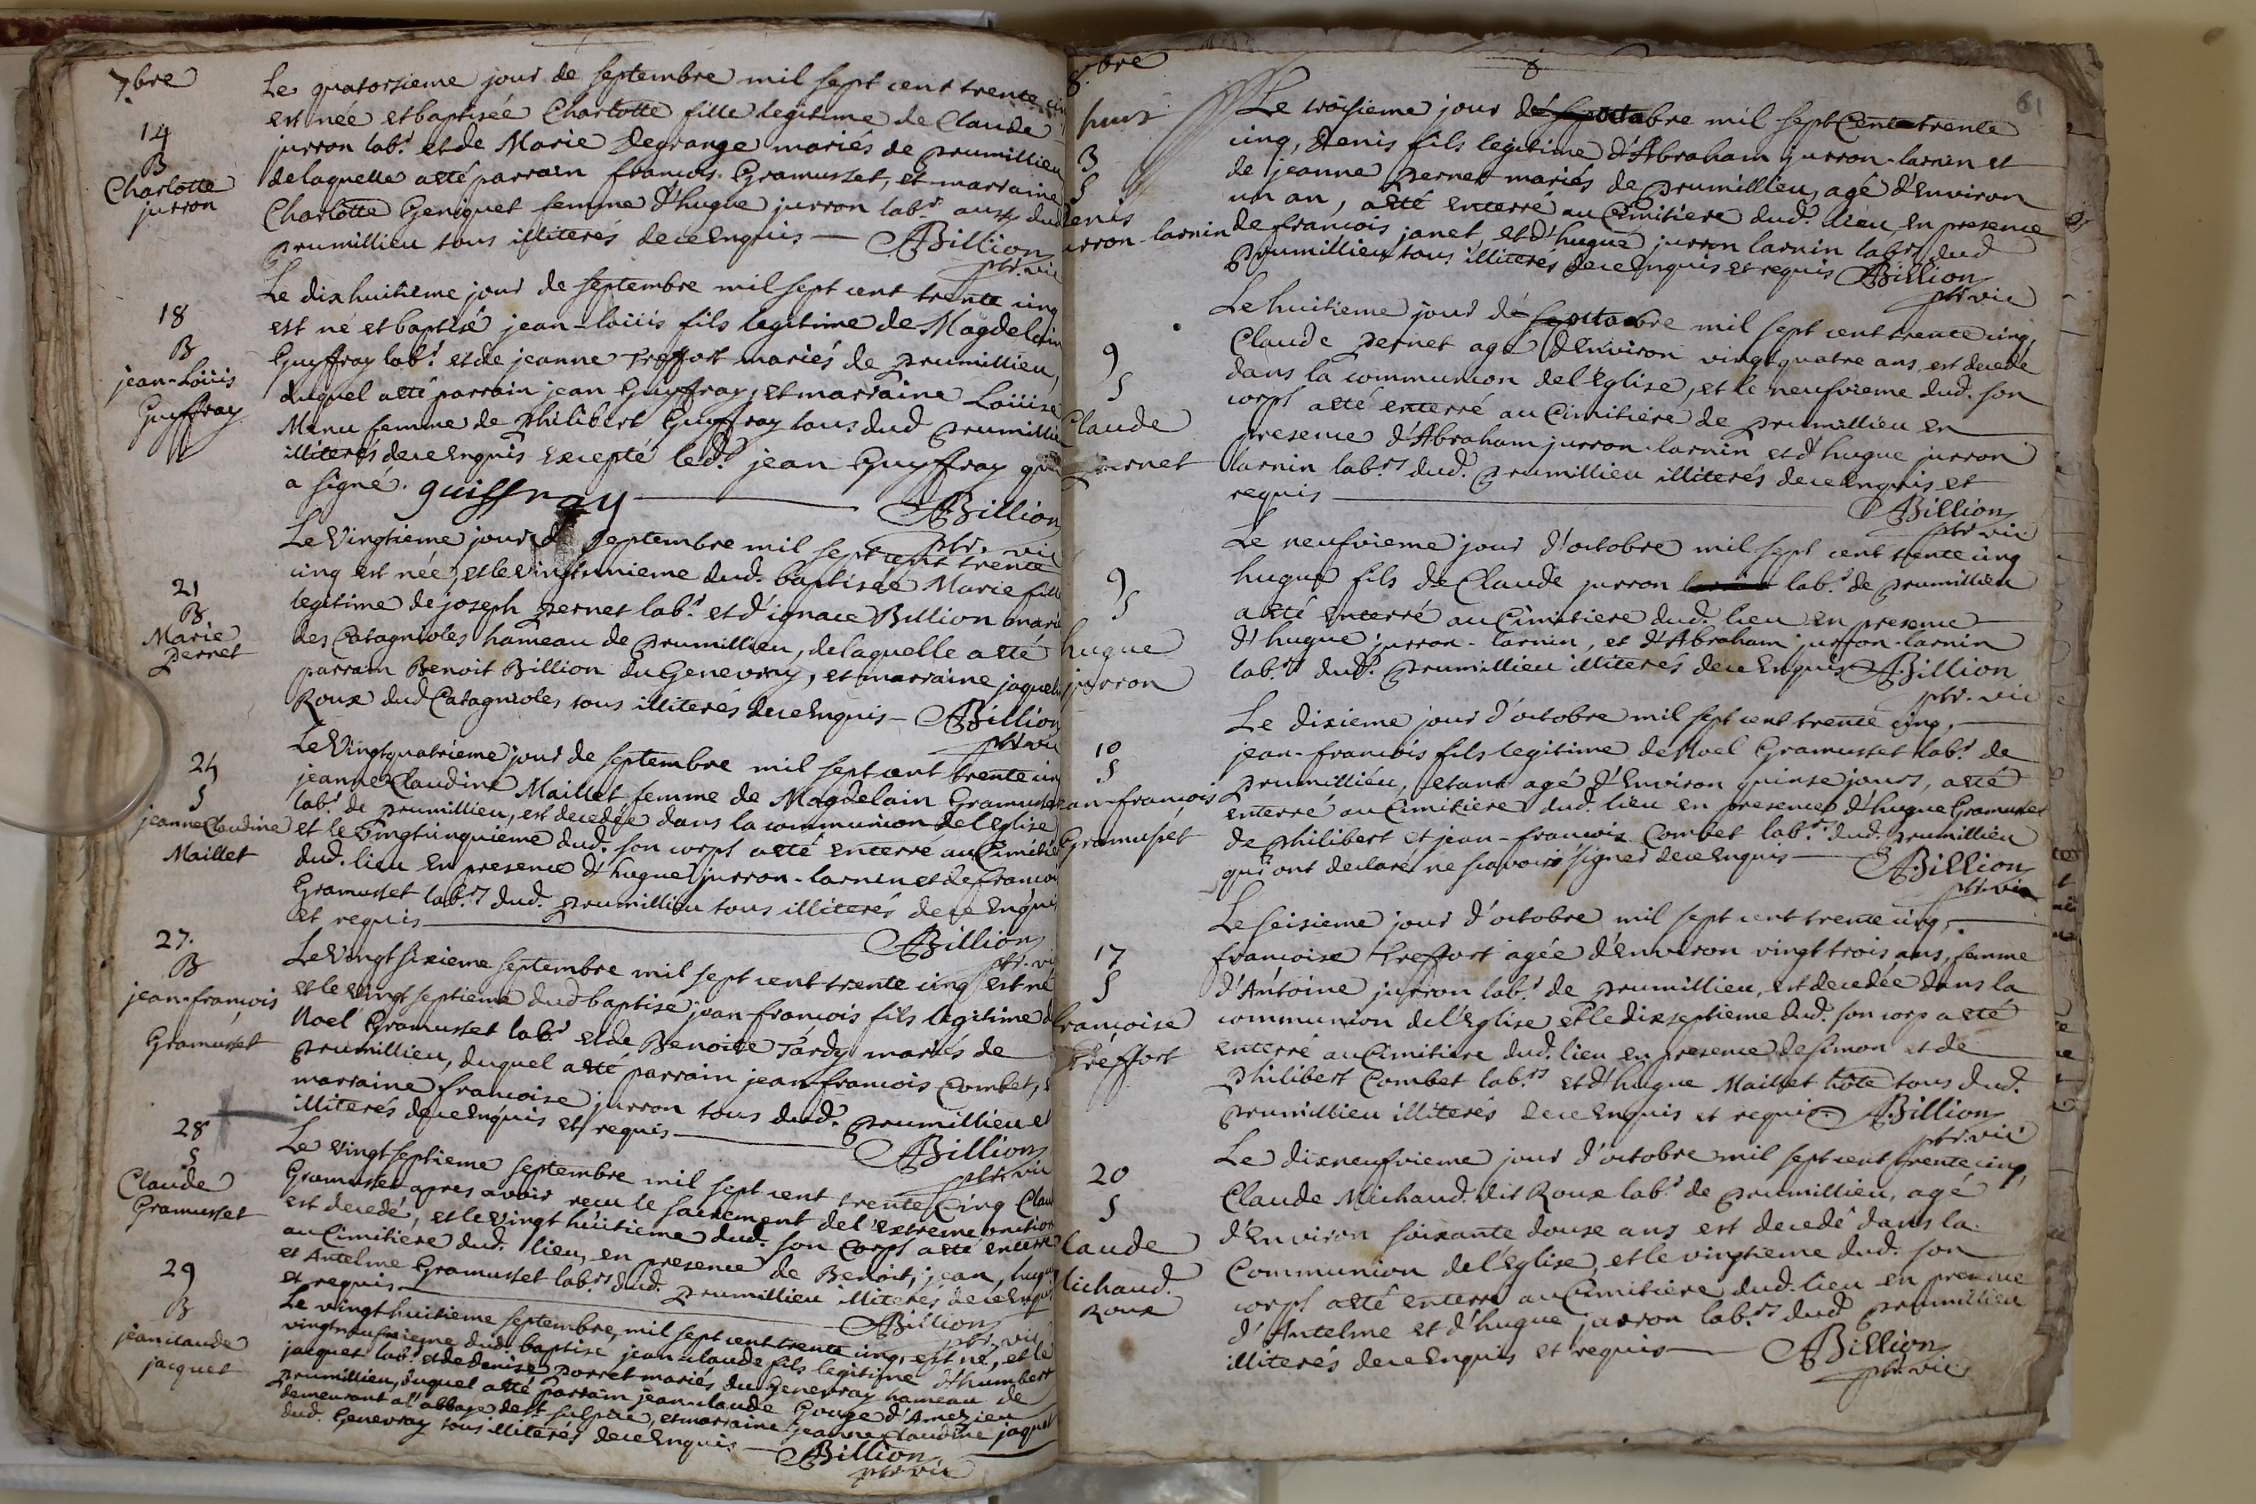 7.bre
14
B
Charlotte
jurron
Le quatorsieme jour de septembre mil sept cent trente
est née et baptisée Charlotte fille legitime de Claude
jurron lab.r et de Marie Degrange mariés de prumillieu
de laquelle a été parrain francois Gramusset, et marraine
Charlotte Geniquet femme d'hugue jurron lab.r aussy dud
prumillieu tous illiterés de ce Enquis — ABillion
ptr. vic
18
B
jean-Loüis
Guyffray
Le dix huitieme jour de septembre mil sept cent trente cinq
est né et baptisé jean-loüis fils legitime de Magdelain
Guyffray lab.r et de jeanne treffort mariés de prumillieu,
duquel a été parrain jean Guyffray, et marraine Loüise
Menu femme de Philibert Guyffray tous dud prumillieu
illiterés de ce Enquis Excepté led.t jean Guyffray qui
a signé. guiffray — ABillion
ptr. vic
21
B
Marie
pernet
Le Vingtieme jour d septembre mil sept cent trente
cinq est née, et le vingtunieme dud. baptisée Marie fille
legitime de joseph pernet lab.r et d'ignace Billion mariés
des Catagnioles hameau de prumillieu, de laquelle a été
parrain Benoit Billion du Genevray, et marraine jaqueline
Roux dud Catagnioles tous illiterés de ce Enquis — ABillion
ptr. vic
24
S
jeanne Claudine
Maillet
Le Vingtquatrieme jour de septembre mil sept cent trente cinq
jeanne Claudine Maillet femme de Magdelain Gramusset
lab.r de prumillieu, est decedée dans la communion de l'Eglise
et le Vingtcinquieme dud. son corps a été enterré au Cimitiere
dud. lieu En presence d'hugue jurron-larnin et de francois
Gramusset lab.rs dud. prumillieu tous illiterés de ce Enquis
et requis — ABillion
ptr. vic
27.
B
jean-francois
Gramusset
Le Vingt sixieme septembre mil sept cent trente cinq est né
et le vingt septieme dud baptisé jean-francois fils legitime de
Noel Gramusset lab.r et de Benoite Tardy mariés de
prumillieu, duquel a été parrain jean francois Combet, et
marraine francoise jurron tous dud. prumillieu et
illiterés de ce Enquis et requis — ABillion
ptr. vic
28
S
Claude
Gramusset
Le vingt septieme septembre mil sept cent trente Cinq Claude
Gramusset apres avoir recu le sacrement de l'extreme onction
est decedé, et le vingt hüitieme dud. son Corps a été enterré
au Cimitiere dud. lieu, en presence de Benoit, jean, hugue
et Antelme Gramusset lab.rs dud. prumillieu illiterés de ce Enquis
et requis — ABillion
ptr. vic
29
B
jean claude
jacquet
Le vingt huitieme septembre, mil sept cent trente cinq, est né, et le
vingtneufvieme dud. baptisé jean claude fils legitime d'humbert
jacquet lab.r et de denise Porret mariés du Genevray hameau de
prumillieu, duquel a été parrain jean claude Gouge d'Amezieu
demeurant a l'abbaye de St sulpice, et marraine jeanne Claudine jaquet
dud. Genevray tous illiterés de ce Enquis — ABillion
ptr. vic
8.bre
61
3
S
enis
urron-larnin
Le troisieme jour de octobre mil sept Cent trente
cinq, Denis fils legitime d'Abraham jurron-larnin et
de jeanne pernet mariés de prumillieu, agé d'Environ
un an, a été enterré au Cimitiere dud. lieu en presence
de francois janet, et d'hugue jurron larnin lab.rs dud
prumillieu tous illiterés de ce Enquis et requis ABillion
ptr. vic
9
S
Claude
pernet
Le huitieme jour de octobre mil sept cent trente cinq,
Claude pernet agé d'Environ vingtquatre ans, est decedé
dans la communion de l'Eglise, et le neufvieme dud. son
corps a été enterré au Cimitiere de prumillieu en
presence d'Abraham jurron-larnin et d'hugue jurron
larnin lab.rs dud. prumillieu illiterés de ce Enquis et
requis — ABillion
ptr. vic
9
S
hugue
jurron
Le neufvieme jour d'octobre mil sept cent trente cinq
hugue fils de Claude jurron lab.r de prumillieu
a été enterré au Cimitiere dud. lieu en presence
d'hugue jurron-larnin, et d'Abraham jurron-larnin
lab.rs dud. prumillieu illiterés de ce Enquis ABillion
ptr. vic
10
S
ean-francois
Gramusset
Le dixieme jour d'octobre mil sept cent trente cinq,
jean-francois fils legitime de Noel Gramusset lab.r de
prumillieu, etant agé d'Environ quinse jours, a été
enterré au Cimitiere dud. lieu en presence d'hugue Gramusset
de philibert et jean-francois Combet lab.rs dud. prumillieu
qui ont declaré ne scavoir signer de ce Enquis — ABillion
ptr. vic
17
S
francoise
treffort
Le seisieme jour d'octobre mil sept cent trente cinq,
francoise treffort agée d'Environ vingt trois ans, femme
d'Antoine jurron lab.r de prumillieu, est decedée dans la
communion de l'Eglise et le dixseptieme dud. son corp a été
enterré au Cimitiere dud. lieu en presence de simon et de
Philibert Combet lab.rs et d'hugue Maillet hôte tous dud.
prumillieu illiterés de ce Enquis et requis. ABillion
ptr. vic
20
S
laude
lichaud.
Roux
Le dixneufvieme jour d'octobre mil sept cent trente cinq,
Claude Michaud. dit Roux lab.r de prumillieu, agé
d'Environ soixante douse ans est decedé dans la
Communion de l'Eglise, et le vingtieme dud. son
corps a été enterré au Cimitiere dud. lieu en presence
d'Antelme et d'hugue jurron lab.rs dud prumillieu
illiterés de ce Enquis et requis — ABillion
ptr. vic